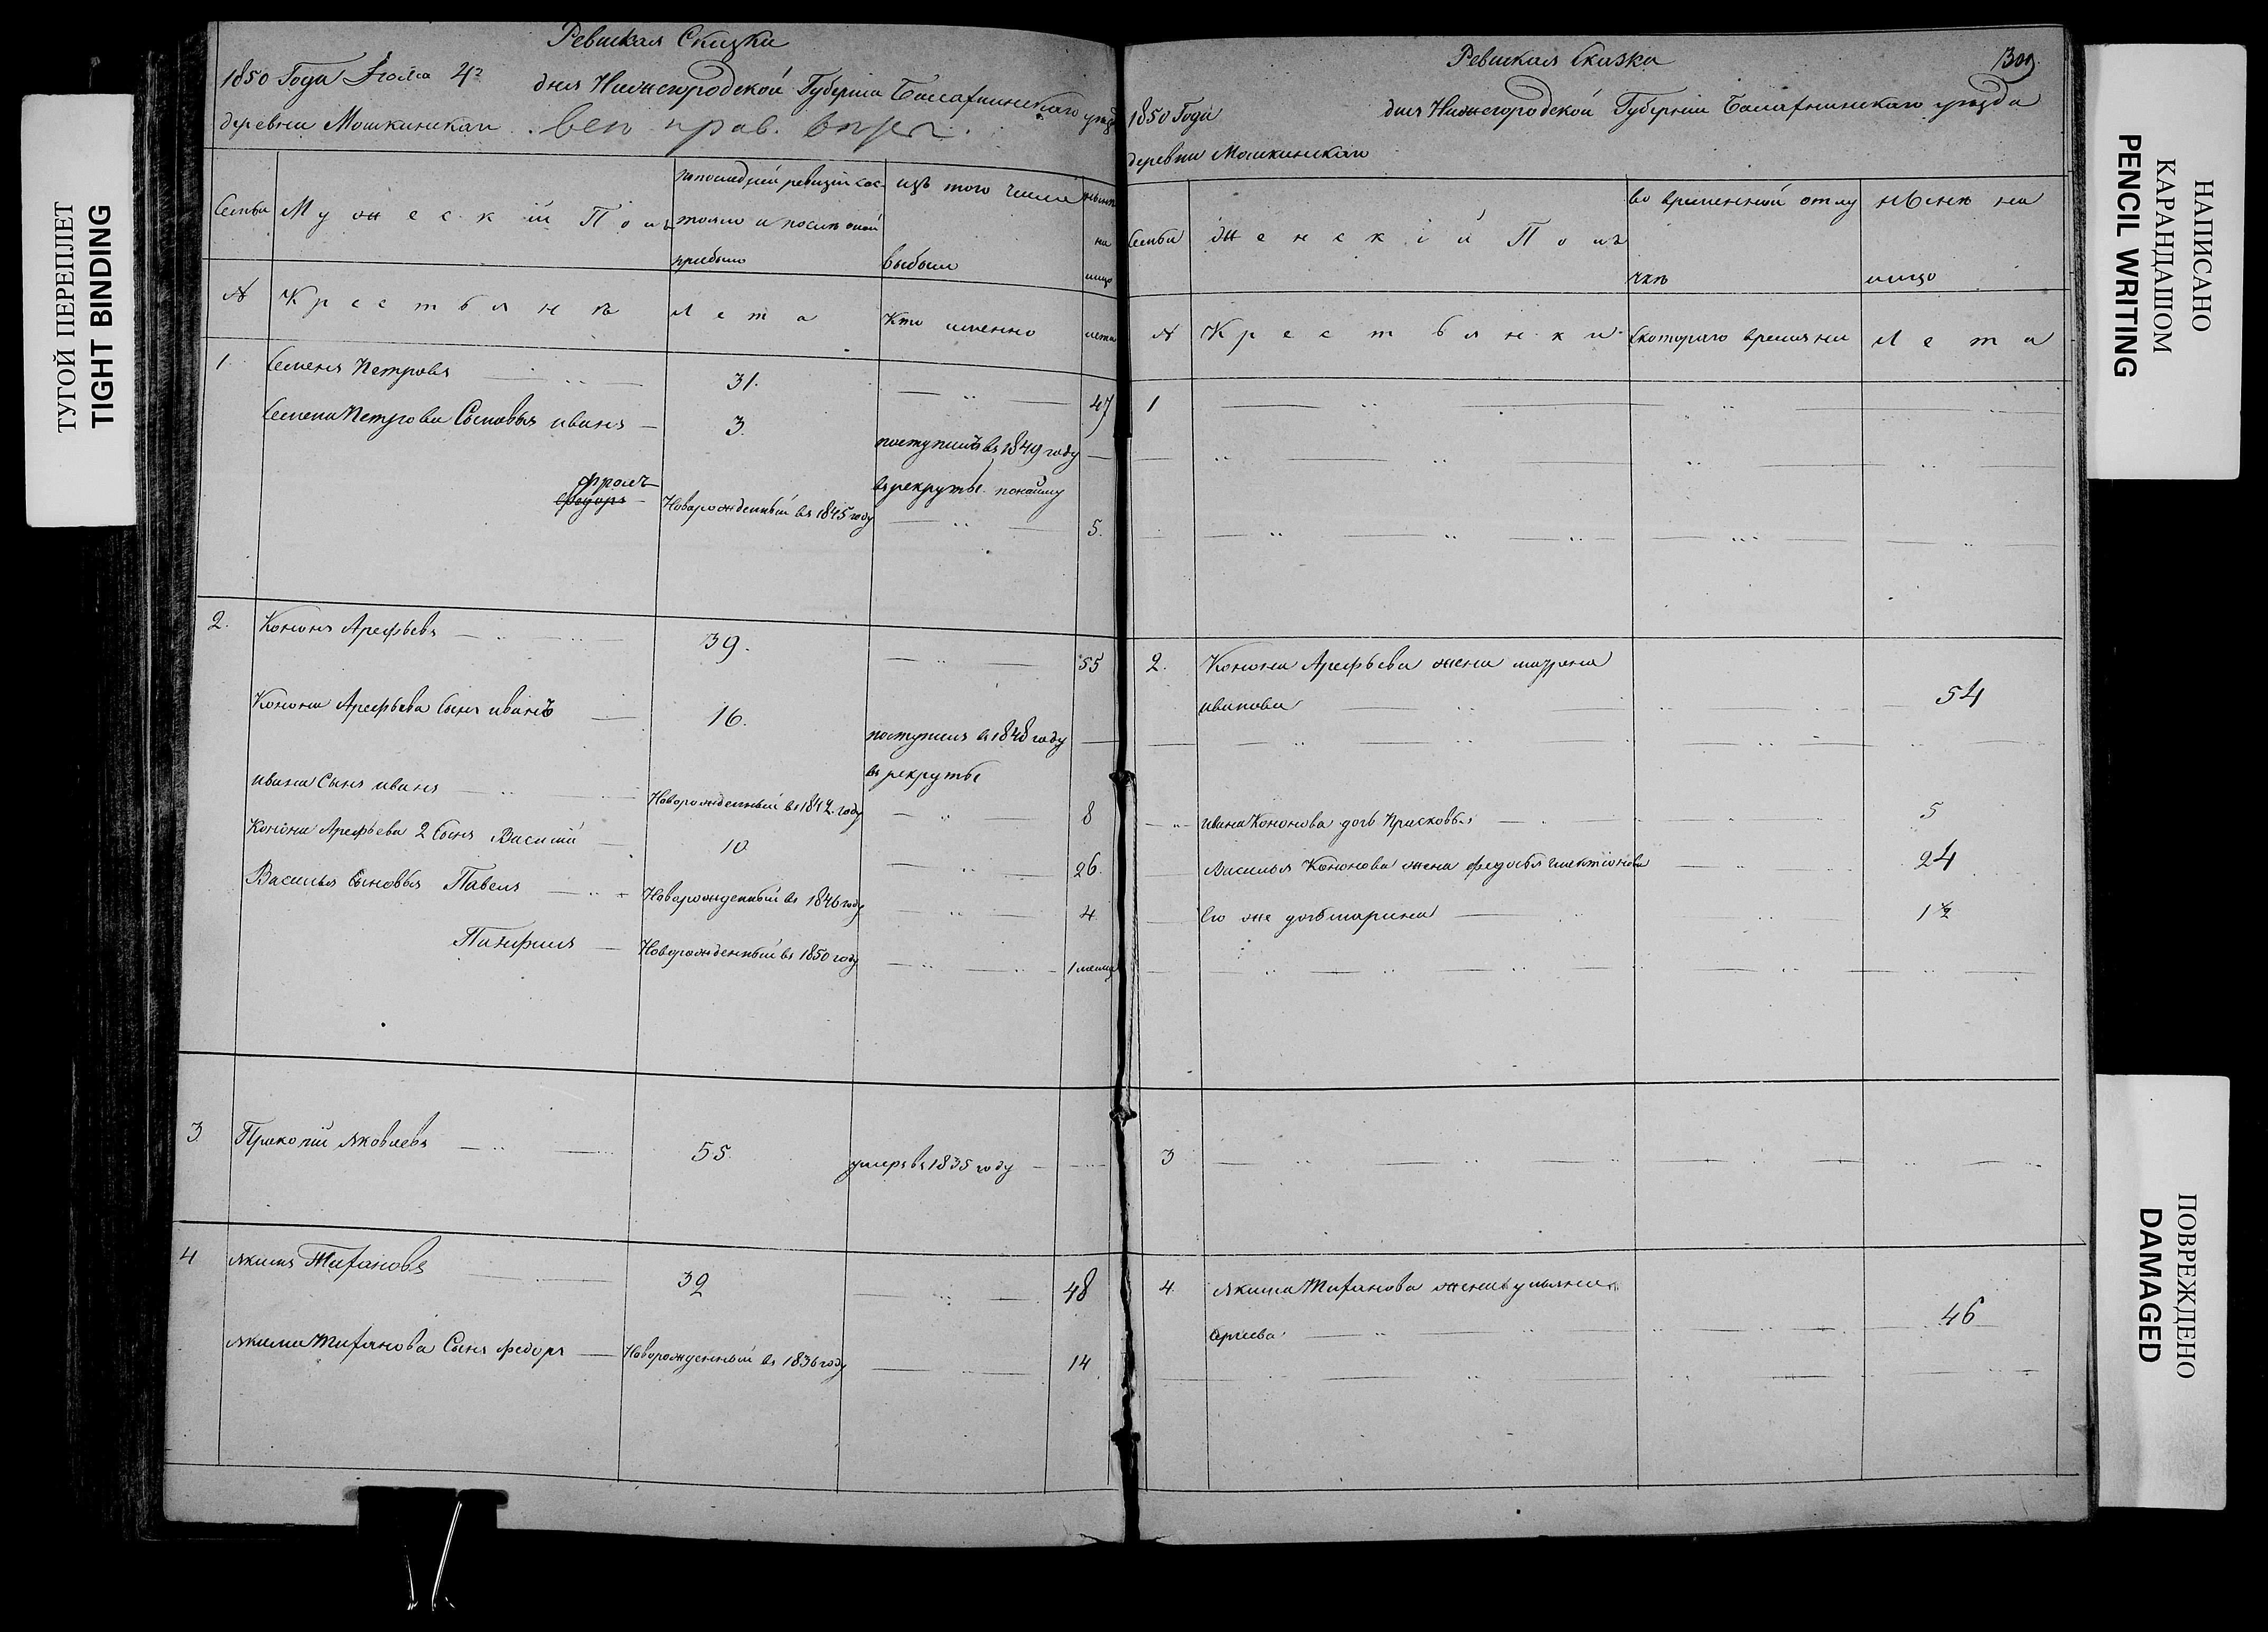 ТУГОЙ ПЕРЕПЛЕТ
TIGHT BINDING
Ревиская Сказка
1850 Года Іюля 4го дня Нижегородской Губерніи Балахнинскаго уезд
деревни Мошкинскаго
Семьи Мужескій Полъ по последней ревизіи сос- изъ того числа ныне
тояло и после оной на
прибыло выбыли лицо
№ Крестьянъ лета Кто именно лета
1. Семенъ Петровъ 31. 47
Семена Петрова Сыновья иванъ 3. поступилъ въ 1849 году
въ рекруты по найму
фролъ
федоръ Новорожденный въ 1845 году 5.
2. Кононъ Арефьевъ 39. 55
Конона Арефьева Сынъ иванъ 16. поступилъ въ 1848 году
въ рекруты
ивана Сынъ иванъ Новорожденный въ 1842 году 8
Конона Арефьева 2 Сынъ Василий 10 26.
Василья Сыновья Павелъ Новорожденный въ 1846 году 4
Панфилъ Новорожденный въ 1850 году 1 месяц
3 Прокопій Яковлевъ 55. умеръ въ 1835 году
4 Якимъ Тифановъ 32 48
Якима Тифанова Сынъ федоръ Новорожденный въ 1836 году 14
Ревиская Сказка 1309
1850 Года дня Нижегородской Губерніи Балахнинскаго уезда
деревни Мошкинскаго
Семьи Женскій Полъ во временной отлу ныне на
чке лицо
№ Крестьянки с котораго времяни Лета
1
2. Конона Арефьева жена маррена
иванова 54
ивана Кононова дочь Прасковья 5
Василья Кононова жена федосья галактіонова 24
Его же дочь марина 1 1/2
3
4. Якима Тифанова жена ульяна
Сергеева 46
НАПИСАНО
КАРАНДАШОМ
PENCIL WRITING
ПОВРЕЖДЕНО
DAMAGED